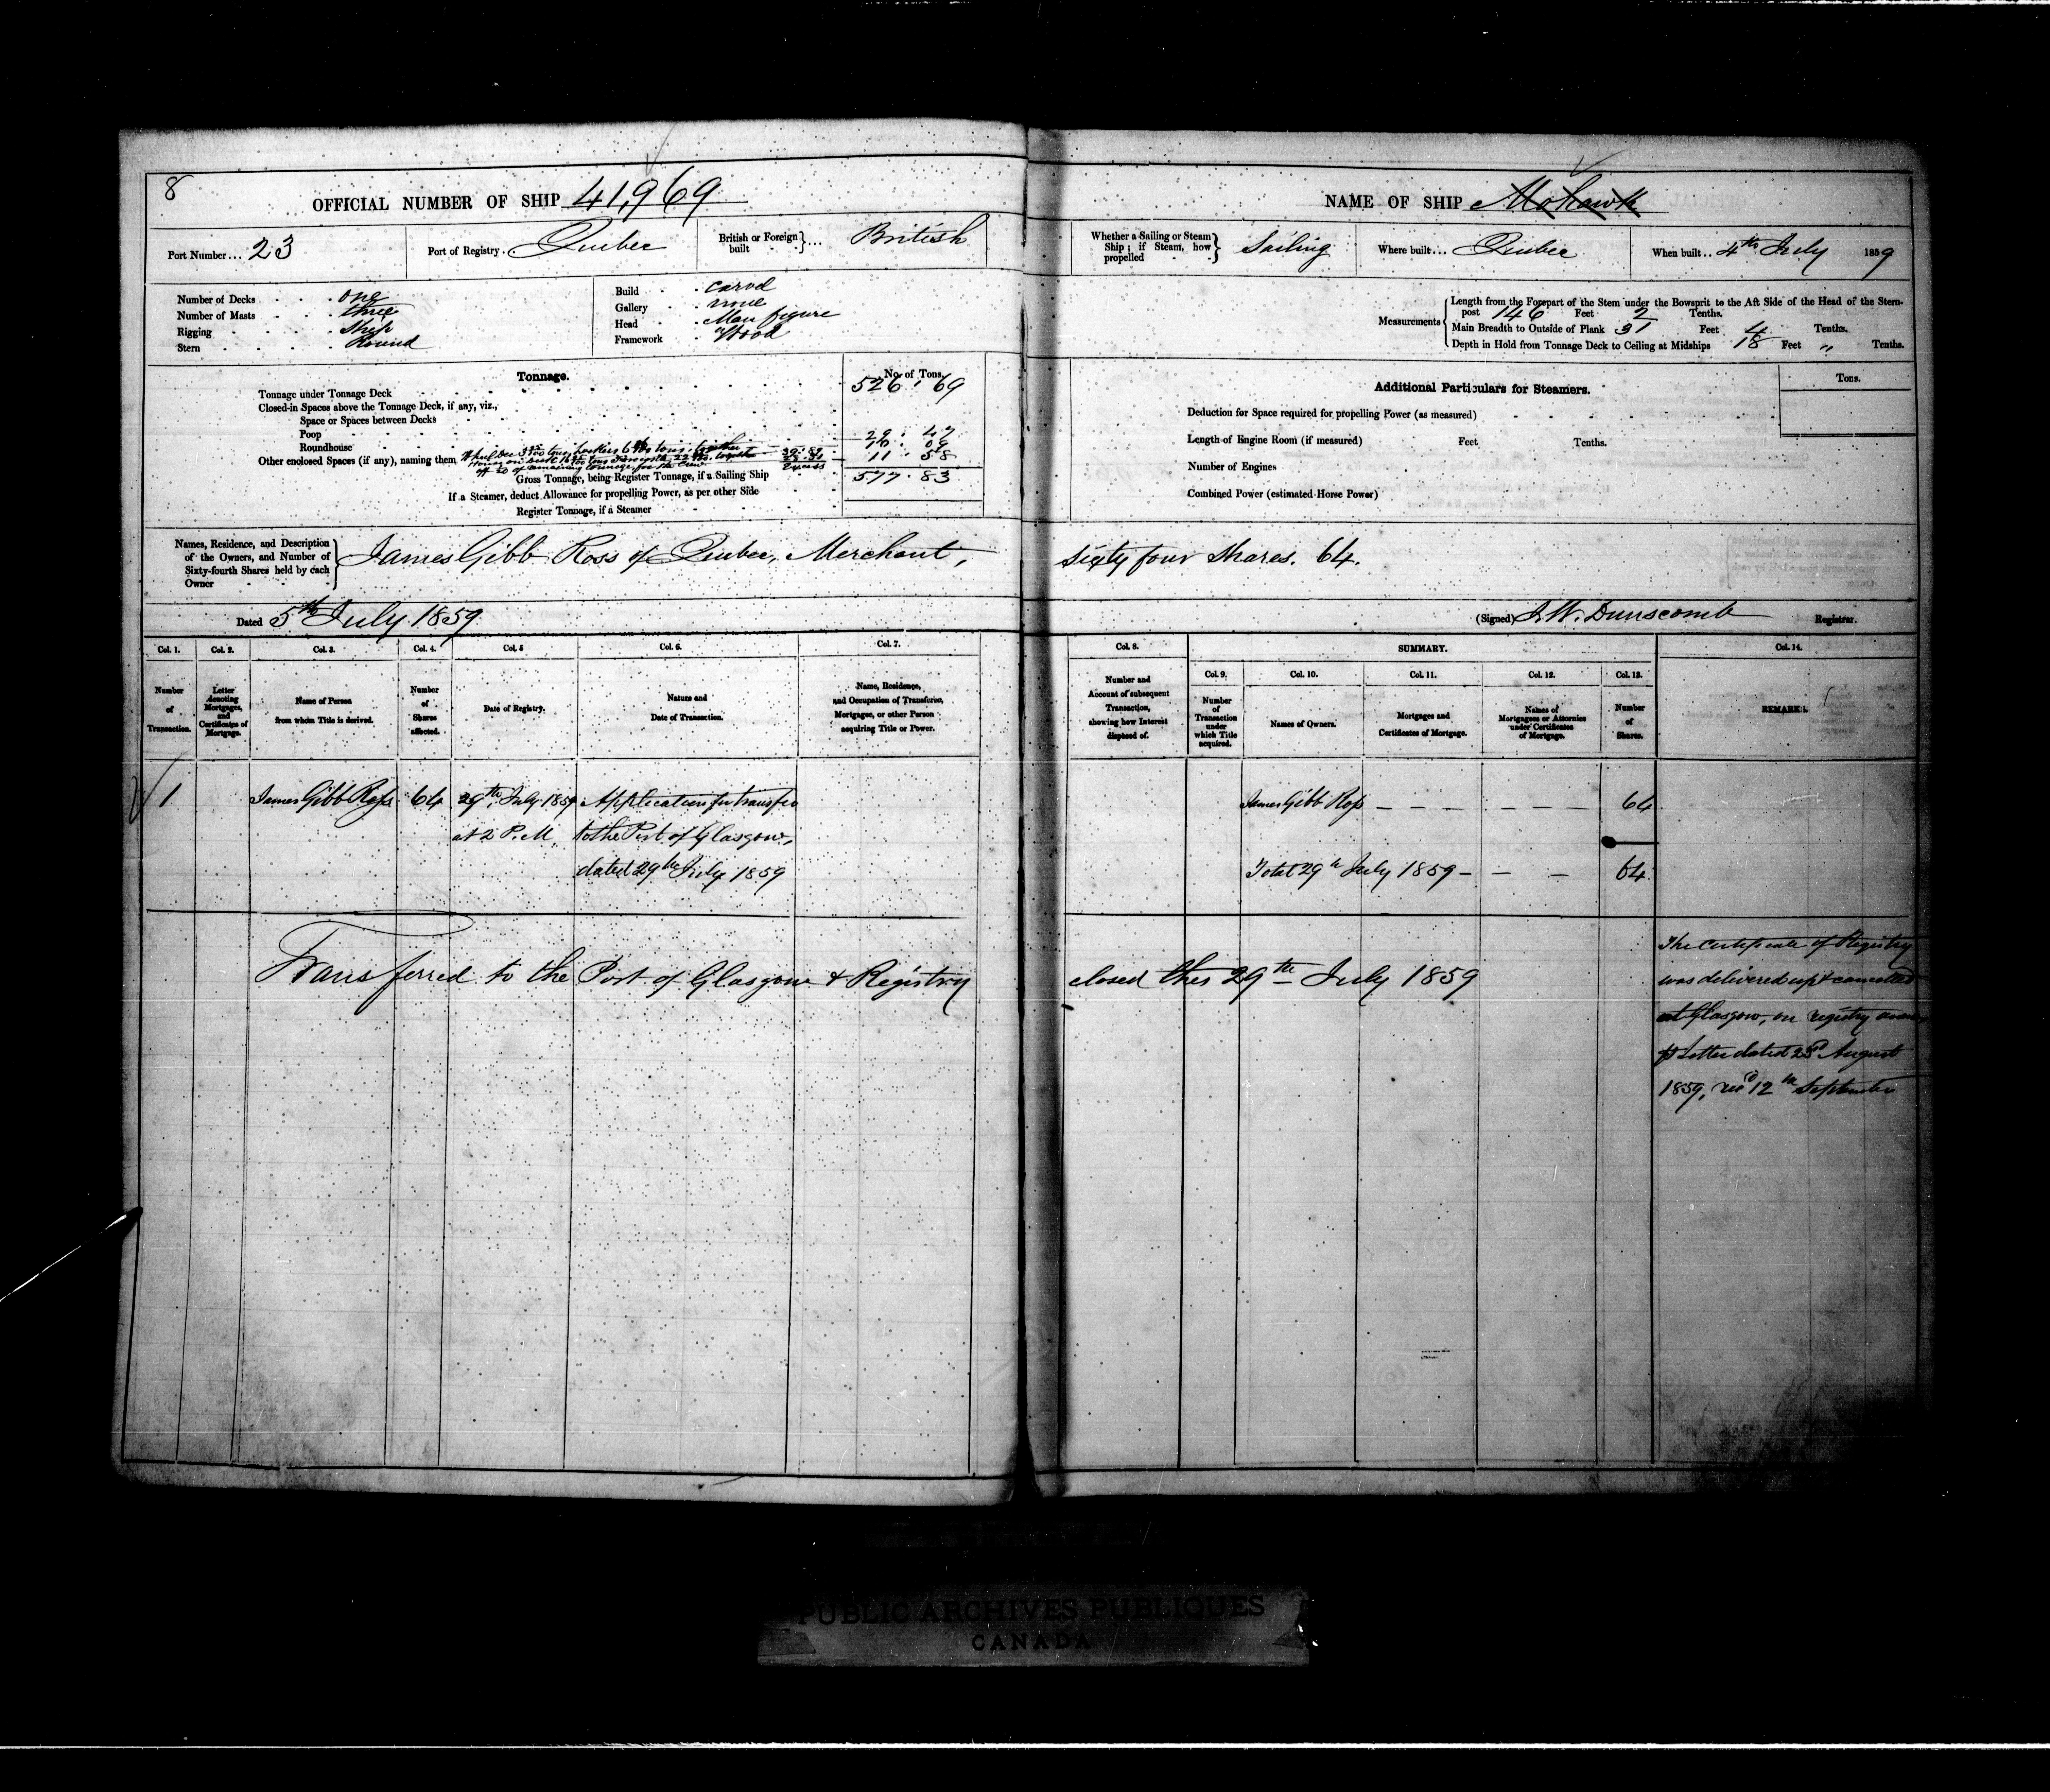 8
OFFICIAL NUMBER OF SHIP 41,969
Port Number... 23
Port of Registry. Quebec
British or Foreign built ... British
Number of Decks one
Number of Masts three
Rigging Ship
Stern Round
Build carvel
Gallery none
Head Man figure
Framework Wood
Tonnage.
No. of Tons.
Tonnage under Tonnage Deck 526.69
Closed-in Spaces above the Tonnage Deck, if any, viz.,
Space or Spaces between Decks
Poop 29.47
Roundhouse 10.09
Other enclosed Spaces (if any), naming them 11.58
Gross Tonnage, being Register Tonnage, if a Sailing Ship 577.83
If a Steamer, deduct Allowance for propelling Power, as per other Side
Register Tonnage, if a Steamer
Names, Residence, and Description of the Owners, and Number of Sixty-fourth Shares held by each Owner
James Gibb Ross of Quebec, Merchant,
Dated 5th July 1859
Col. 1. Col. 2. Col. 3. Col. 4. Col. 5 Col. 6. Col. 7.
Number of Transaction.
Letter denoting Mortgages, and Certificates of Mortgage.
Name of Person from whom Title is derived.
Number of Shares affected.
Date of Registry.
Nature and Date of Transaction.
Name, Residence, and Occupation of Transferee, Mortgagee, or other Person acquiring Title or Power.
1 James Gibb Ross 64 29th July 1859 Application for transfer
at 2 P.M. to the Port of Glasgow,
dated 29th July 1859
Transferred to the Port of Glasgow & Registry
NAME OF SHIP Mohawk
Whether a Sailing or Steam Ship; if Steam, how propelled Sailing
Where built... Quebec
When built.. 4th July 1859
Measurements
Length from the Forepart of the Stem under the Bowsprit to the Aft Side of the Head of the Stern-
post 146 Feet 2 Tenths.
Main Breadth to Outside of Plank 31 Feet 4 Tenths.
Depth in Hold from Tonnage Deck to Ceiling at Midships 18 Feet " Tenths.
Additional Particulars for Steamers.
Tons.
Deduction for Space required for propelling Power (as measured)
Length of Engine Room (if measured) Feet Tenths.
Number of Engines
Combined Power (estimated Horse Power)
Sixty four Shares. 64.
(Signed) J.W. Dunscomb Registrar.
Col. 8. SUMMARY. Col. 14.
Col. 9. Col. 10. Col. 11. Col. 12. Col. 13.
Number and Account of subsequent Transaction, showing how Interest disposed of.
Number of Transaction under which Title acquired.
Names of Owners.
Mortgages and Certificates of Mortgage.
Names of Mortgagees or Attornies under Certificates of Mortgage.
Number of Shares.
REMARKS.
James Gibb Ross — — — — — — 64
Total 29th July 1859 — — — 64
closed this 29th July 1859
The Certificate of Registry
was delivered up & cancelled
at Glasgow, on registry anew
p Letter dated 23d August
1859, recd 12th September
PUBLIC ARCHIVES PUBLIQUES
CANADA